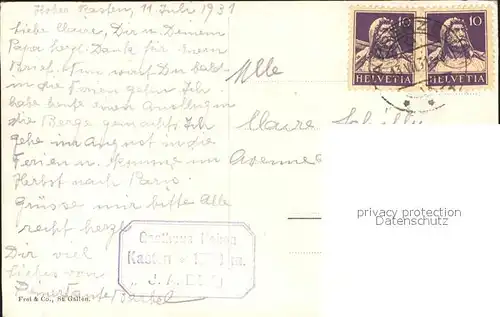 Hoher Kasten, 11. Juli 1931
Liebe Claire, Dir u. Deinem
Papa herzl. Dank für Euern
Brief. Nun wirst Du bald
in die Ferien gehen. Ich
habe heute einen Ausflug in
die Berge gemacht. Ich
gehe im August in die
Ferien u. komme im
Herbst nach Paris.
Grüsse mir bitte Alle
recht herzl.
Dir viel
Liebes von
Deiner Tante
Frei & Co., St. Gallen.
Gasthaus Hohen
Kasten
Mlle
Claire
Avenue
10 10
HELVETIA HELVETIA
copyright protection
WATERMARK
protected